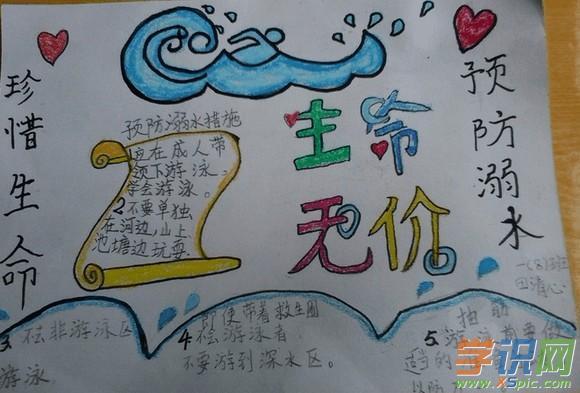 珍惜生命
预防溺水
生命
无价
预防溺水措施
应在成人带
领下游泳。
学会游泳。
2不要单独
在河边,山上
池塘边玩耍
一(8)班
3 不去非游泳区
游泳
4 即使带着救生圈
不会游泳者
不要游到深水区。
5
适当的
以防
学识网
www.XSpic.com